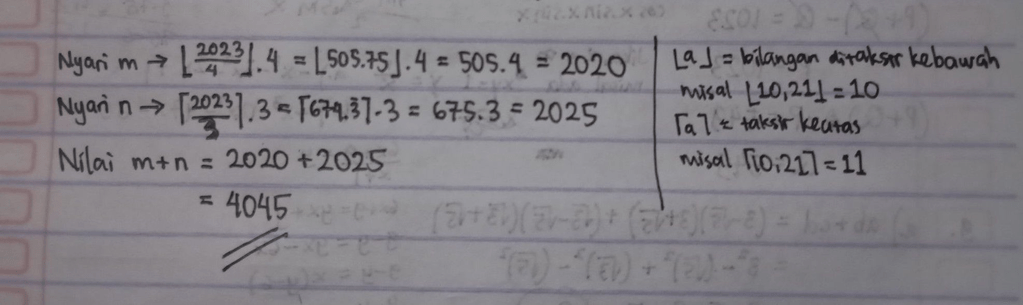 Nyari m → ⌊2023/4⌋.4 = ⌊505.75⌋.4 = 505.4 = 2020
Nyari n → ⌈2023/3⌉.3 = ⌈674.3⌉.3 = 675.3 = 2025
Nilai m+n = 2020 + 2025
= 4045
⌊a⌋ = bilangan ditaksir kebawah
misal ⌊10,21⌋ = 10
⌈a⌉ = taksir keatas
misal ⌈10,21⌉ = 11